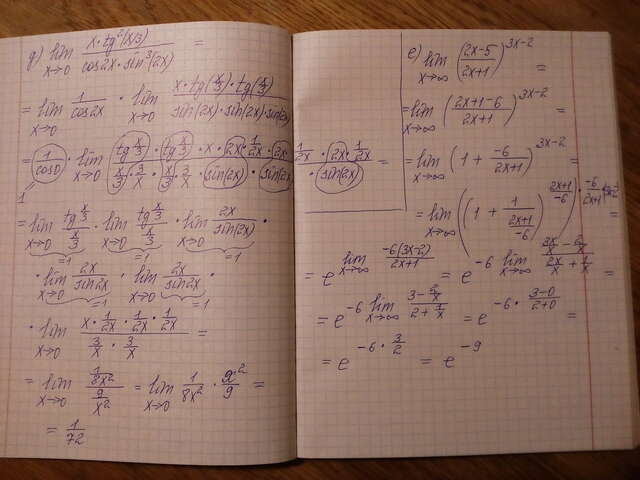 д) lim x→0 x·tg²(x/3) / cos2x·sin³(2x) =
= lim x→0 1/cos2x · lim x→0 x·tg(x/3)·tg(x/3) / sin(2x)·sin(2x)·sin(2x)
= 1/cos0 · lim x→0 tg x/3 · tg x/3 · x · 2x · 1/2x · 2x · 1/2x · 2x · 1/2x / x/3 · 3/x · x/3 · 3/x · sin(2x) · sin(2x) · sin(2x) =
1
= lim x→0 tg x/3 / x/3 · lim x→0 tg x/3 / x/3 · lim x→0 2x / sin(2x) ·
=1 =1 =1
· lim x→0 2x / sin2x · lim x→0 2x / sin2x ·
=1 =1
· lim x→0 x · 1/2x · 1/2x · 1/2x / 3/x · 3/x =
= lim x→0 1/8x² / 9/x² = lim x→0 1/8x² · x²/9 =
= 1/72
е) lim x→∞ (2x-5 / 2x+1)^3x-2 =
= lim x→∞ (2x+1-6 / 2x+1)^3x-2 =
= lim x→∞ (1 + -6 / 2x+1)^3x-2 =
= lim x→∞ ((1 + 1 / 2x+1 / -6)^2x+1 / -6)^-6 / 2x+1 · =
= e^lim x→∞ -6(3x-2) / 2x+1 = e^-6 lim x→∞ 3x/x - 2/x / 2x/x + 1/x =
= e^-6 lim x→∞ 3 - 2/x / 2 + 1/x = e^-6 · 3-0 / 2+0 =
= e^-6 · 3/2 = e^-9